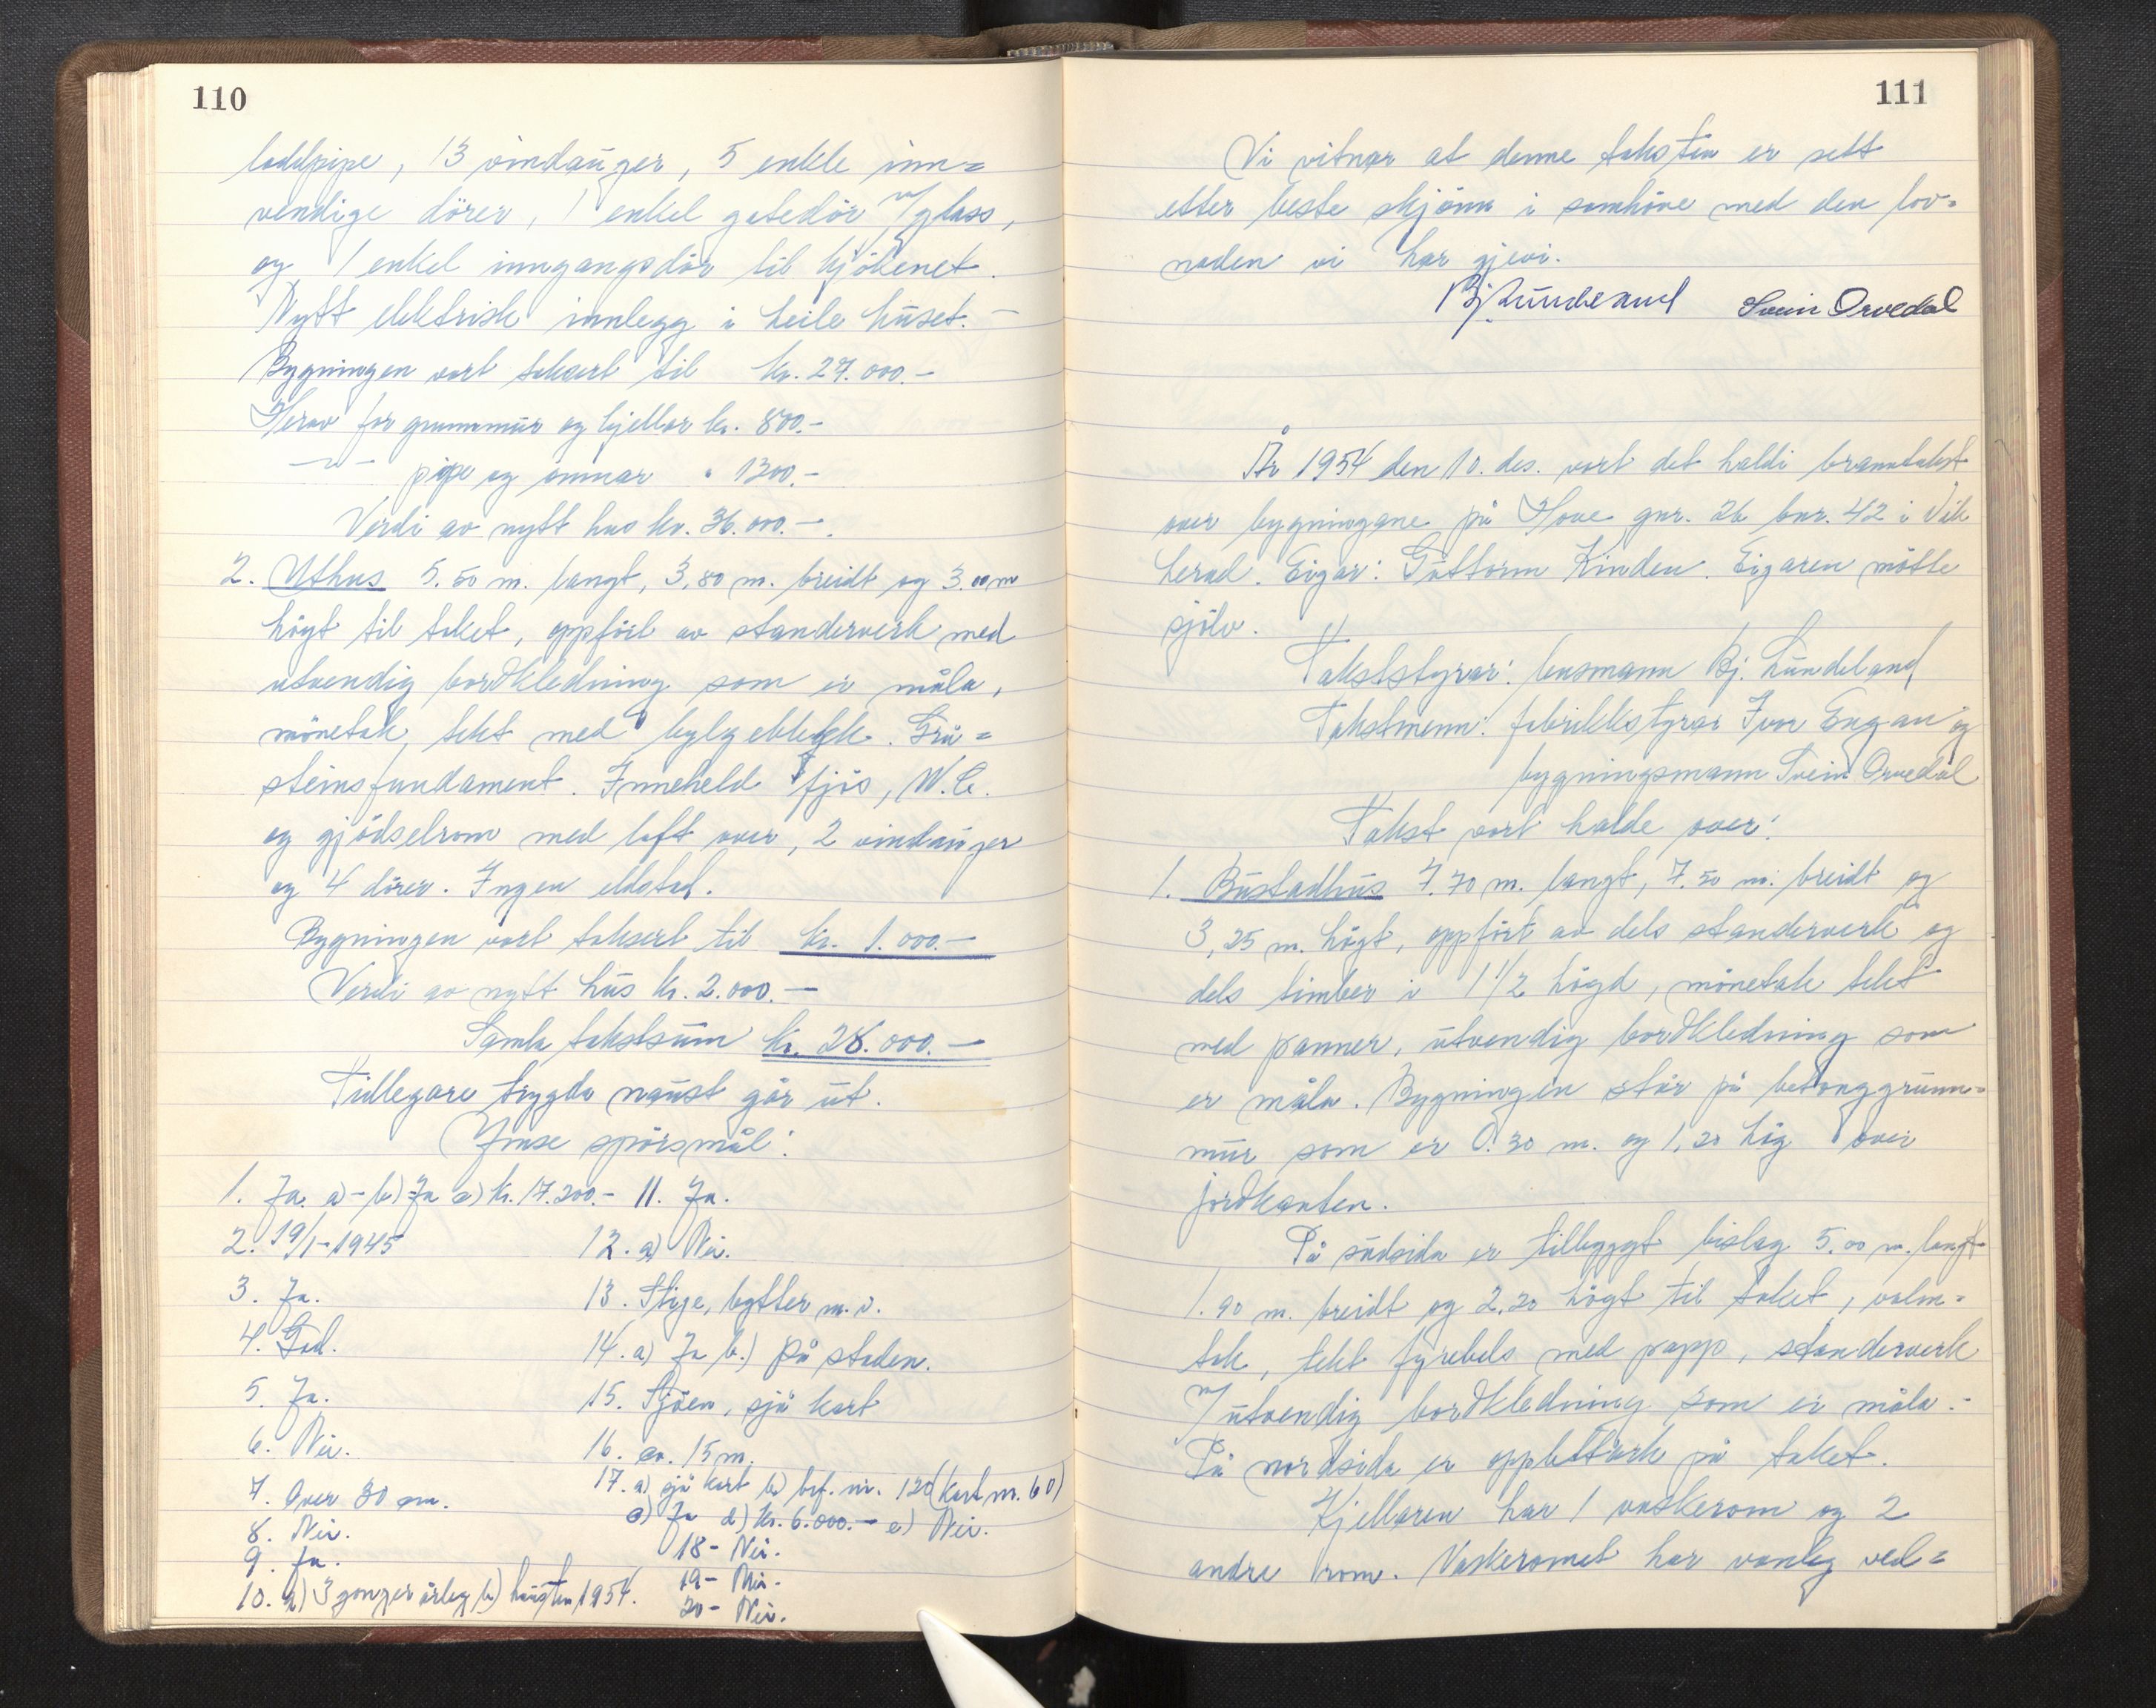 110
loddpipe, 13 vindauger, 5 enkle inn=
vendige dörer, 1 enkel gatedör m/glass,
og 1 enkel inngangsdör til kjökenet.
Nytt elektrisk innlegg i heile huset. –
Bygningen vart taksert til kr. 27.000.–
Herav for grunnmur og kjellar kr. 800.–
–"– pipe og omnar " 1300.–
Verdi av nytt hus kr. 36.000.–.
2. Uthus 5.50 m. langt, 3,80 m. breidt og 3.00 m
högt til taket, oppfört av standerverk med
utvendig bordkledning som er måla,
mönetak, tekt med bylgeblekk. Grå=
steinsfundament. Inneheld fjös, W.C.
og gjödselrom med loft over, 2 vindauger
og 4 dörer. Ingen eldstad.
Bygningen vart taksert til kr. 1.000.–
Verdi av nytt hus kr. 2.000.–
Samla takstsum kr. 28.000.–
Tidlegare trygda naust går ut.
Ymse spörsmål:
1. Ja. a) – b) Ja c) kr. 17.200.– 11. Ja.
2. 19/1-1945 12. a) Nei.
3. Ja. 13. Stige, bytter m.v.
4. God. 14. a) Ja b.) På staden.
5. Ja. 15. Sjöen, sjå kart
6. Nei. 16. ca. 15 m.
7. Over 30 cm. 17. a) sjå kart b) brf. nr. 120 (kart nr. 60)
c) Ja d) kr. 6.000.– e) Nei.
8. Nei. 18– Nei.
9. Ja. 19– Nei.
10. a) 3 gonger årleg b) hausten 1954. 20– Nei.
111
Vi vitnar at denne taksten er sett
etter beste skjönn i samhöve med den lov=
naden vi har gjevi.
Bj. Lundeland Svein Orvedal
År 1954 den 10. des. vart det haldi branntakst
over bygningane på Hove gnr. 26 bnr. 42 i Vik
herad. Eigar: Guttorm Kinden. Eigaren mötte
sjölv.
Takststyrar: lensmann Bj. Lundeland
Takstmenn: fabrikkstyrar Ivar Engan og
bygningsmann Svein Orvedal
Takst vart halde over:
1. Bustadhus 7.70 m. langt, 7.50 m. breidt og
3,25 m. högt, oppfört av dels standerverk og
dels timber i 1 1/2 högd, mönetak tekt
med panner, utvendig bordkledning som
er måla. Bygningen står på betonggrunn=
mur som er 0.30 m. og 1,20 hög over
jordkanten.
På sudsida er tilbyggt bislag 5.00 m. langt
1.90 m. breidt og 2.20 högt til taket, valm=
tak, tekt fyrebels med papp, standerverk
m/utvendig bordkledning som er måla. –
På nordsida er opplettark på taket.
Kjellaren har 1 vaskerom og 2
andre rom. Vaskeromet har vanleg ved=